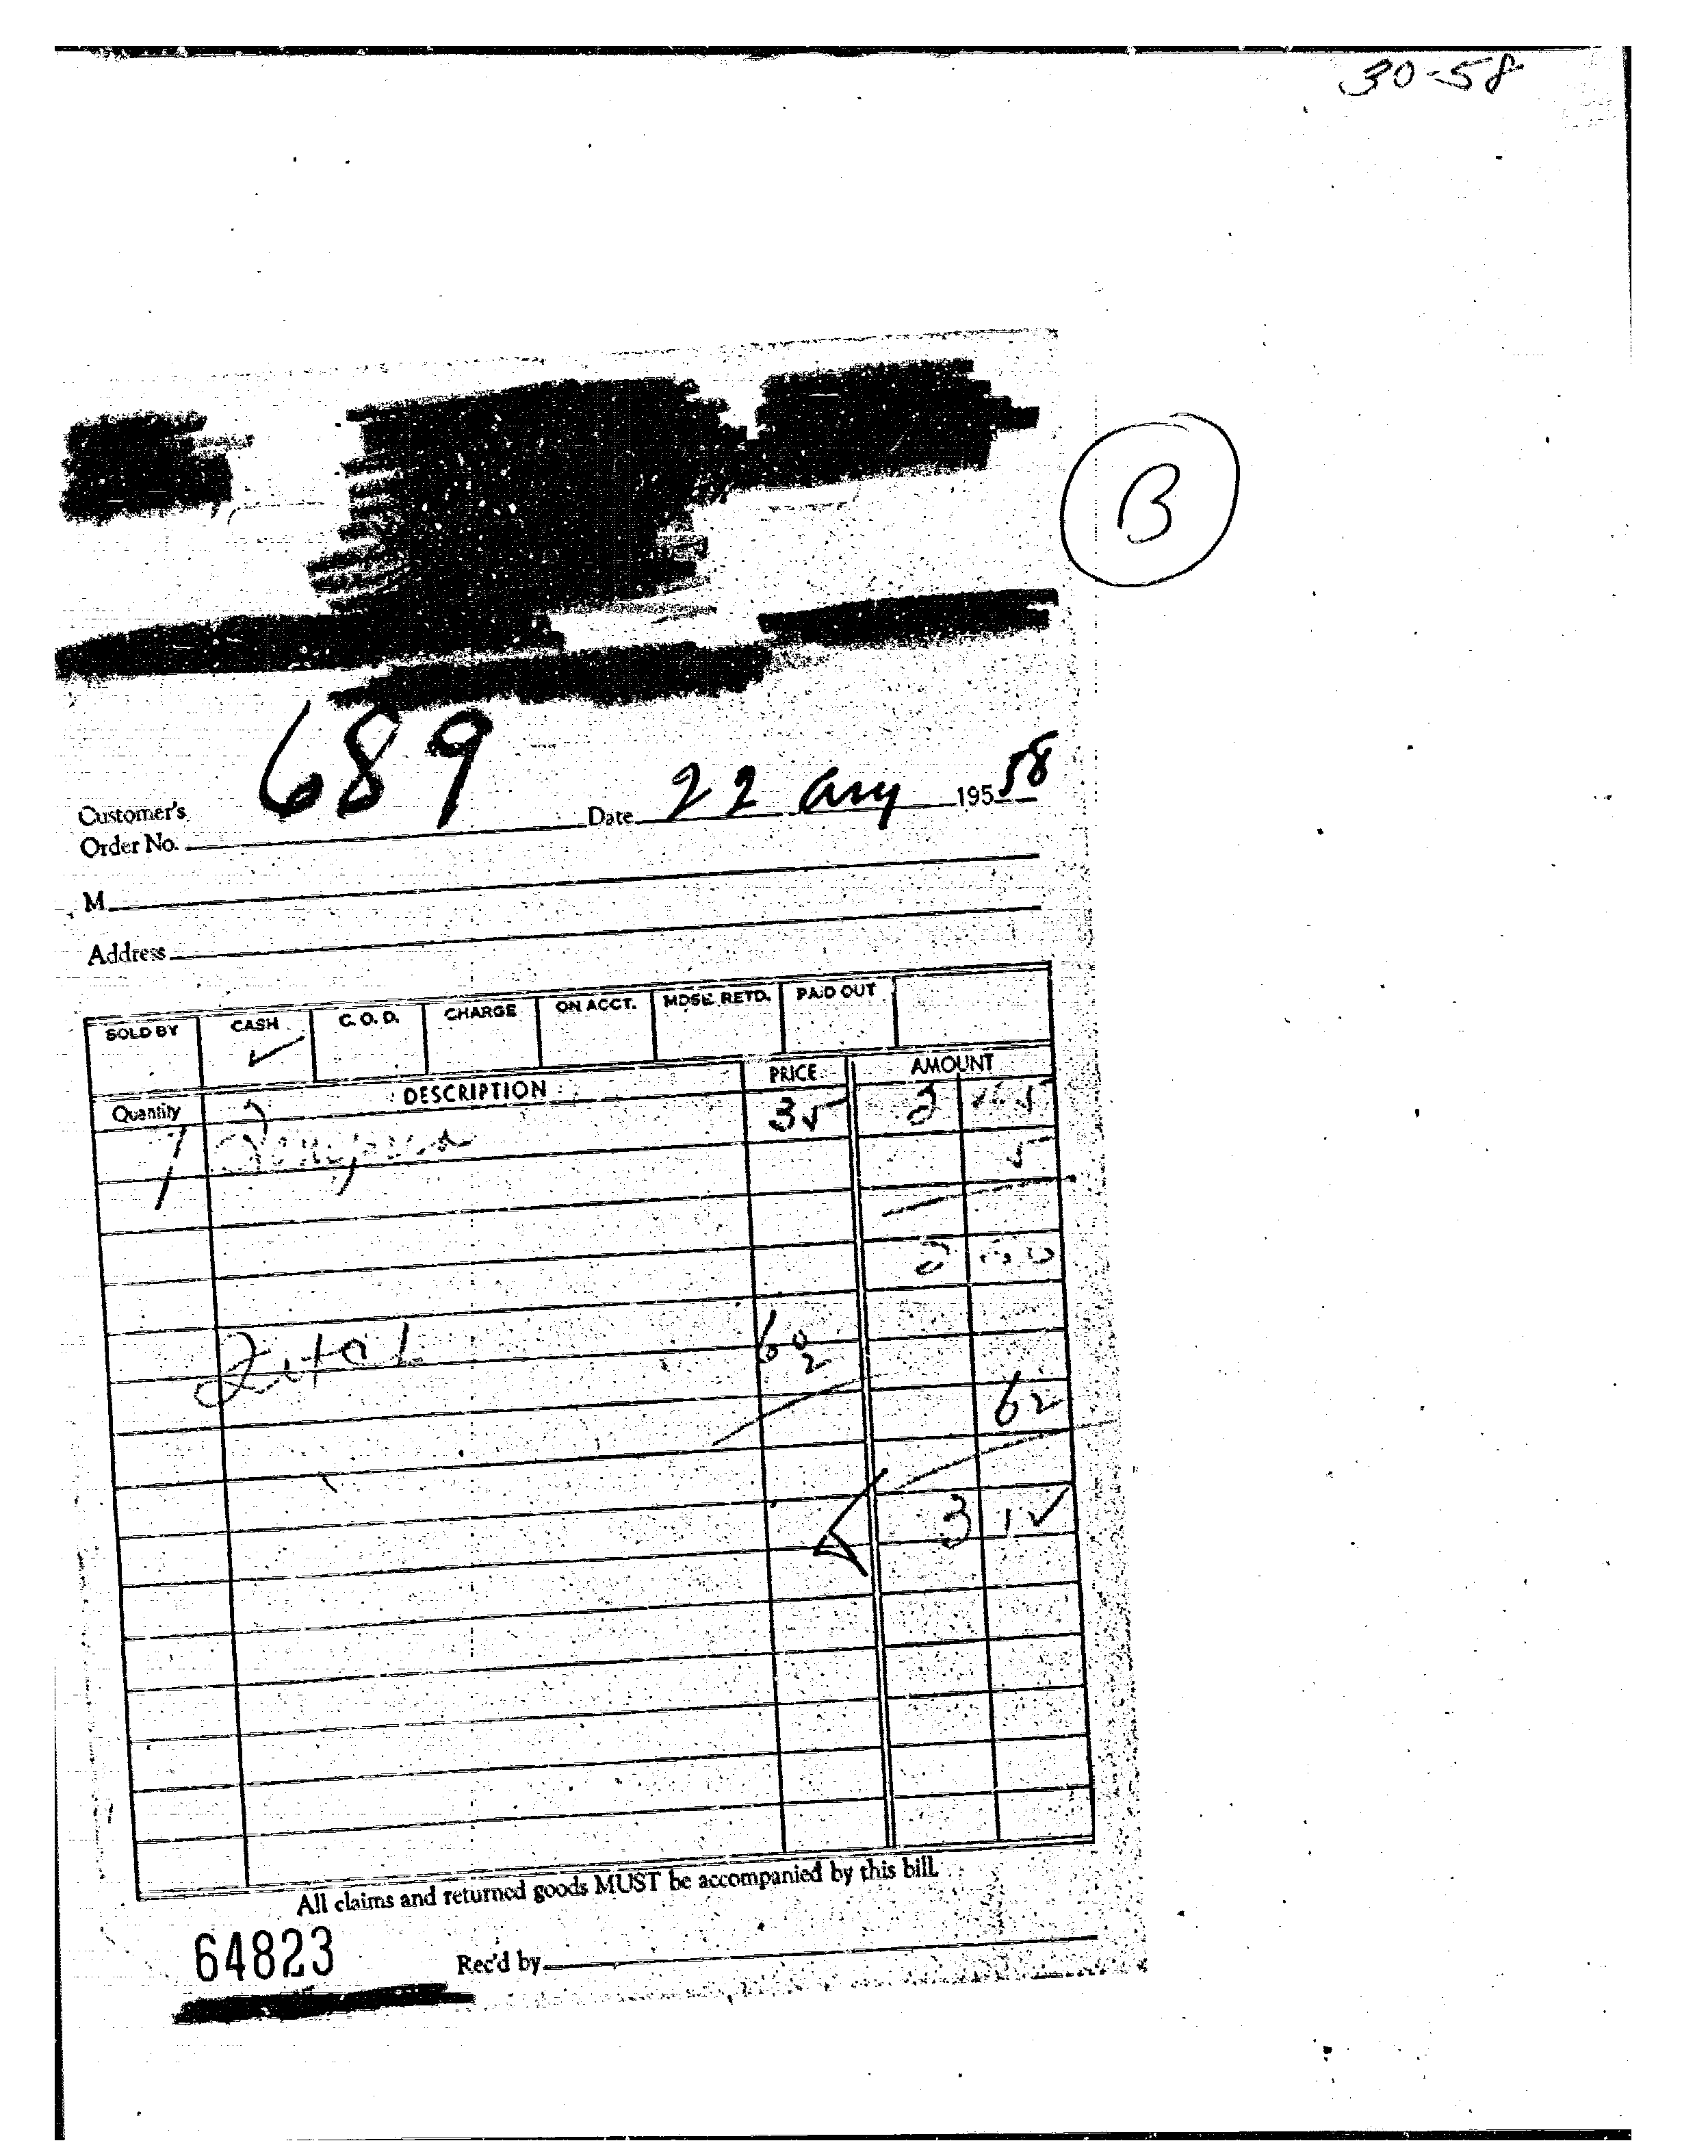 30-58
B
689
Customer's
Order No.
Date 22 Aug 195 58
M
Address
SOLD BY CASH ✓ C. O. D. CHARGE ON ACCT. MDSE. RETD. PAID OUT
Quantity DESCRIPTION PRICE AMOUNT
1 35 3
5
60
2
62
3 1
All claims and returned goods MUST be accompanied by this bill.
64823 Rec'd by